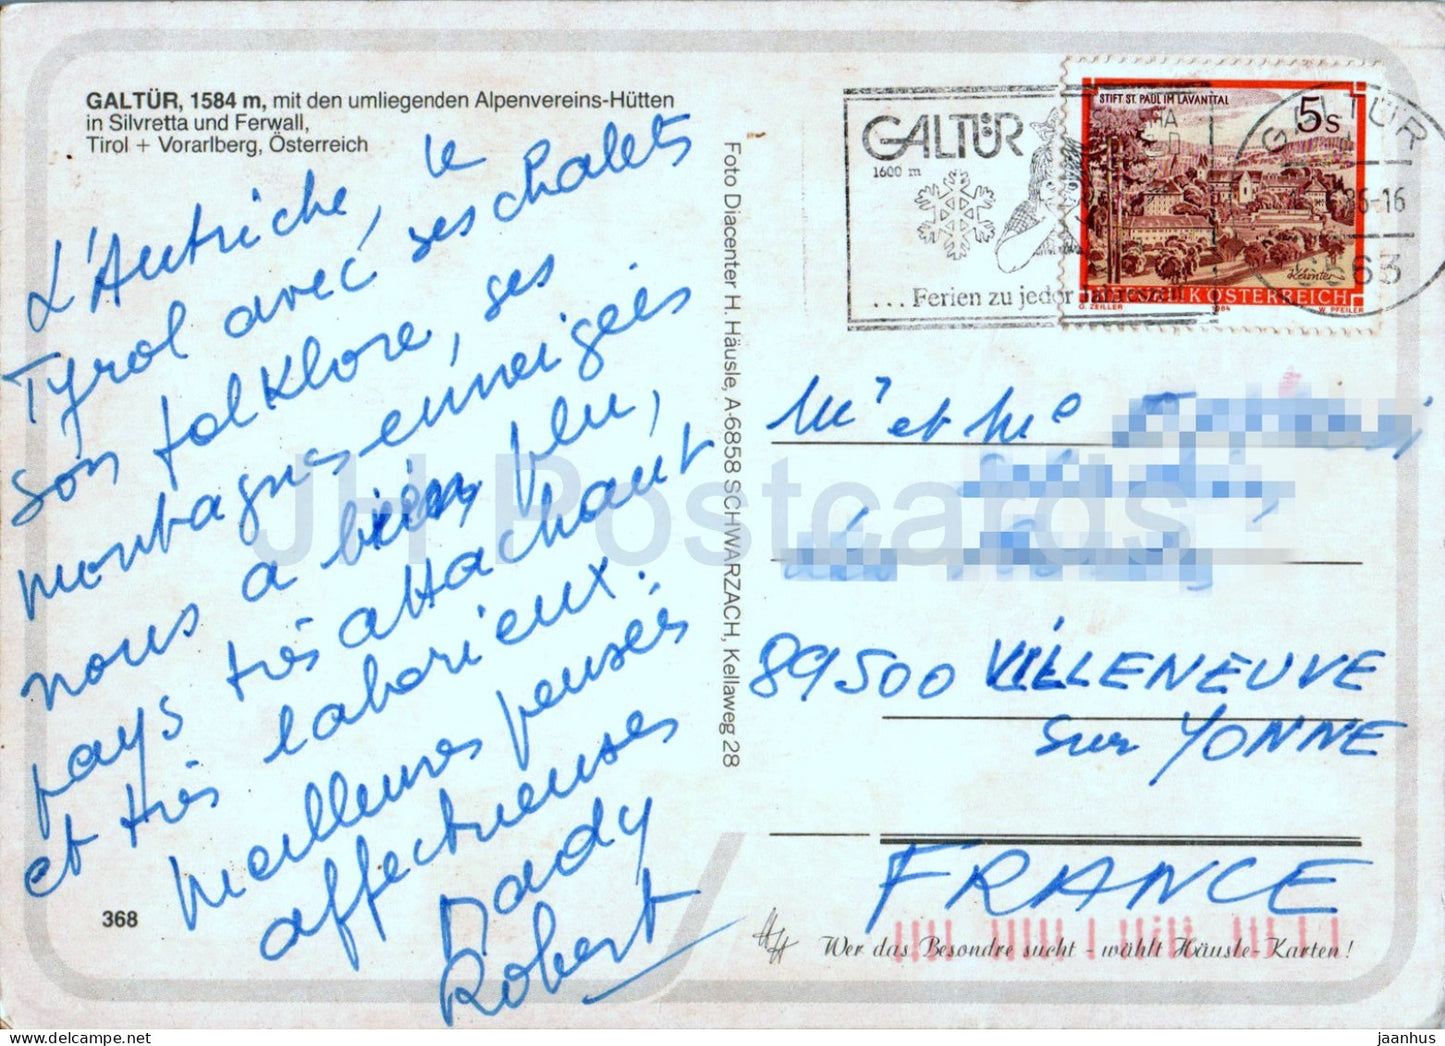 GALTÜR, 1584 m, mit den umliegenden Alpenvereins-Hütten
in Silvretta und Ferwall,
Tirol + Vorarlberg, Österreich
L'Autriche, le
Tyrol avec ses chalets
son folklore, ses
montagnes enneigées
nous a bien plu,
pays très attachant
et très laborieux.
Meilleures pensées
affectueuses
Dady
Robert
368
Foto Diacenter H. Häusle, A-6858 SCHWARZACH, Kellaweg 28
GALTÜR
1600 m
... Ferien zu jeder Jahreszeit
STIFT ST. PAUL IM LAVANTTAL
5 S
Kärnten
REPUBLIK ÖSTERREICH
G. ZEILLER 1984 W. PFEILER
GALTÜR
86-16
6563
Mr et Me
89500 VILLENEUVE
sur YONNE
FRANCE
HH Wer das Besondre sucht - wählt Häusle-Karten!
JH Postcards
jaanhus
delcampe.net